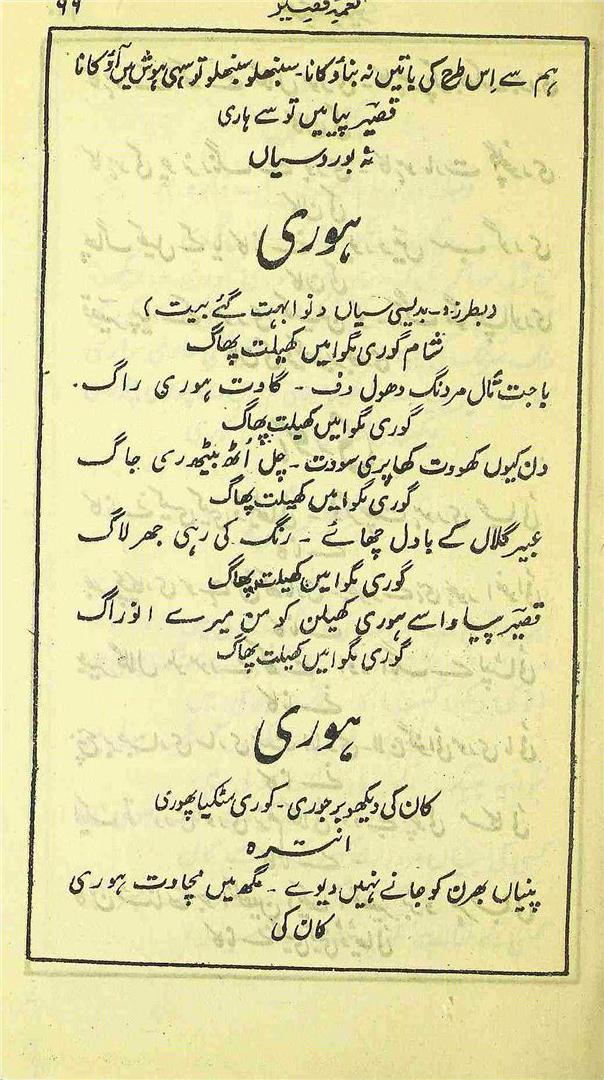 ۶۶ نغمۂ قصیر
ہم سے اِس طرح کی باتیں نہ بناؤ کانا۔ سنبھلو سنبھلو تو سہی ہوش میں آؤ کانا
قصیرؔ پیا میں تو سے ہاری
نہ بورو سیاں
ہوری
(بطرز:۔ بدیسی سیاں دنوا بہت گئے بیت)
شام گوری بگوا میں کھیلت پھاگ
باجت تال مردنگ دھول دف ۔ گاوت ہوری راگ.
گوری بگوا میں کھیلت پھاگ
دن کیوں کھووت کھاپری سووت ۔ چل اُٹھ بیٹھوری جاگ
گوری بگوا میں کھیلت پھاگ
عبیر گلال کے بادل چھائے ۔ رنگ کی رہی جھر لاگ
گوری بگوا میں کھیلت پھاگ
قصیرؔ پیا واسے ہوری کھیلن کو من میرے انوراگ
گوری بگوا میں کھیلت پھاگ
ہوری
کان کی دیکھو برجوری ۔ کوری مٹکیا پھوری
انترہ
پنیاں بھرن کو جانے نہیں دیوے ۔ مگھ میں مچاوت ہوری
کان کی